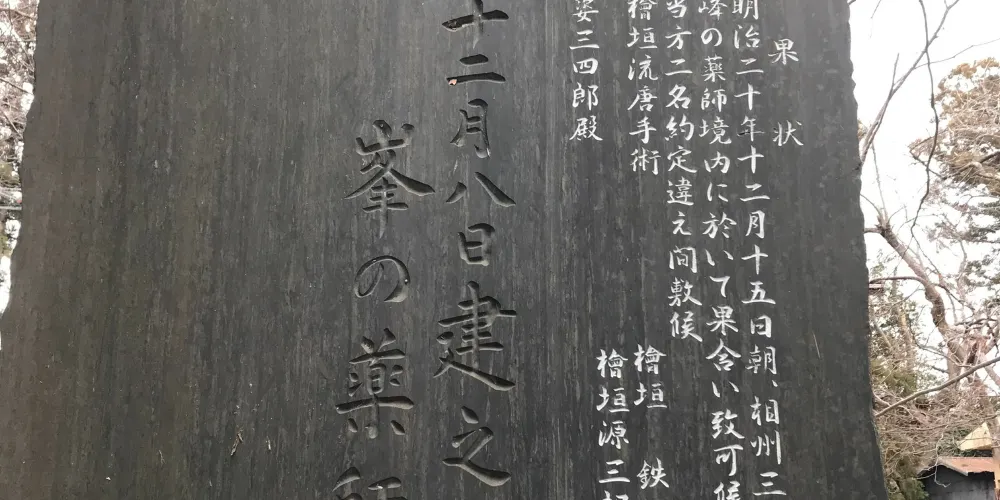 果状
明治二十年十二月十五日朝、相州三
峰の薬師境内に於いて果合い致可候
当方二名約定違え間敷候
檜垣流唐手術 檜垣 鉄
檜垣源三郎
姿三四郎殿
十二月八日建之
峯の薬師